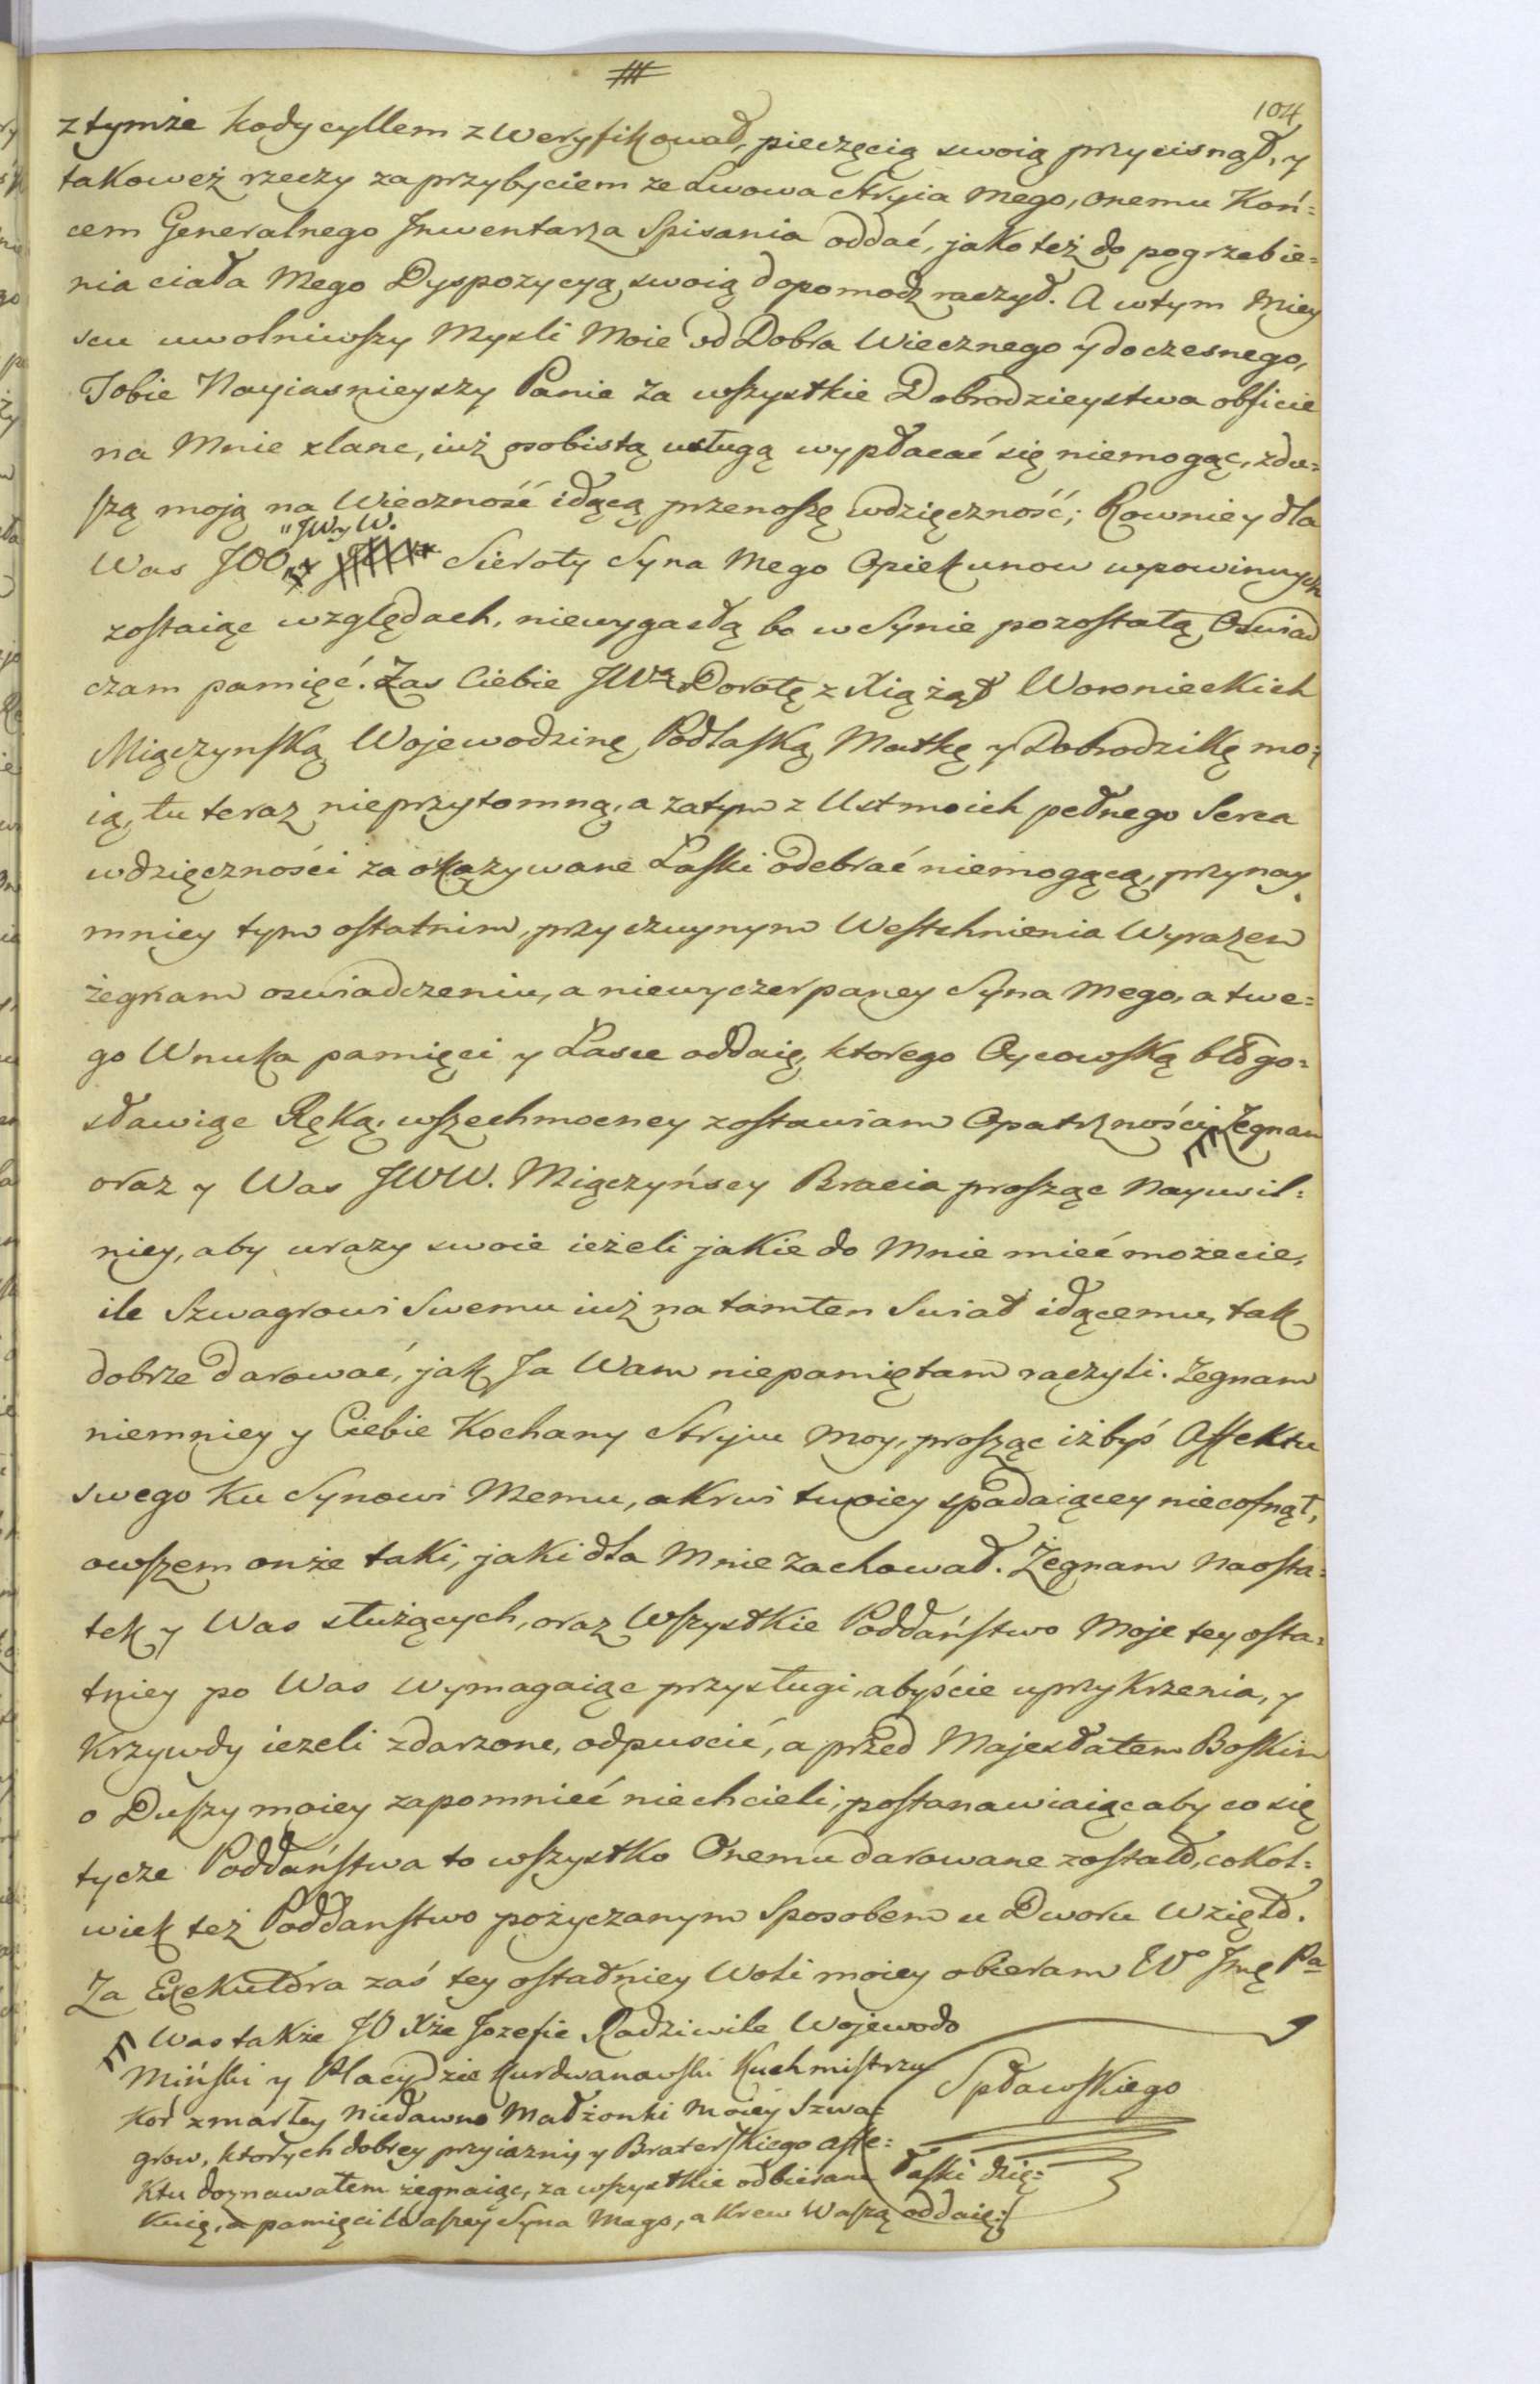 104
z tymże kodycyllem zweryfikował, pieczęcią swoią przycisnął, y
takoweż rzeczy za przybyciem ze Lwowa Stryia mego, onemu koń=
cem Generalnego Jnwentarza Spisania oddać, jako też do pogrzebie=
nia ciała Mego Dyspozycyą swoią dopomodz raczył. A w tym Miey
scu uwolniwszy Mysli Moie od Dobra Wiecznego y doczesnego,
Tobie Nayiasnieyszy Panie za wszystkie Dobrodzieystwa obficie
na Mnie zlane, iuż osobistą usługą wypłacać się niemogąc, z du=
szą moją na Wieczność idącą przenoszę wdzięczność; Rowniey dla
"JW. y W.
Was JOO. Sieroty Syna Mego Opiekunow w powinnych
zostaiąc względach, niewygasłą bo w Synie pozostałą Oswiad
czam pamięć. Zas Ciebie JWą Dorotę z Xiążąt Woronieckich
Miączynską Wojewodzinę Podlaską Matkę y Dobrodzikę mo=
ią, tu teraz nieprzytomną, a zatym z Ust moich pełnego Serca
wdzięczności za okazywane Łaski odebrać niemogącą, przynay
mniey tym ostatnim, przy czuynym Westchnienia Wyrazem
żegnam oswiadczeniu, a niewyczerpaney Syna Mego, a twe=
go Wnuka pamięci y Łasce oddaię, ktorego Oycowską błogo=
sławiąc Ręką, wszechmocney zostawiam Opatrzności Żegnam
oraz y Was JWW. Miączyńscy Bracia prosząc Nayusil=
niey, aby urazy swoie ieżeli jakie do Mnie mieć możecie,
ile Szwagrowi Swemu iuż na tamten Swiat idącemu, tak
dobrze darować, jak Ja Wam niepamiętam raczyli. Żegnam
niemniey y Ciebie Kochany Stryiu moy, prosząc iżbyś Affektu
swego Ku Synowi Memu, a Krwi twoiey spadaiącey niecofnął,
owszem onże taki, jaki dla Mnie zachował. Żegnam Naosta=
tek y Was służących, oraz Wszystkie Poddaństwo Moje tey osta=
tniey po Was wymagaiąc przysługi, abyście uprzykrzenia, y
Krzywdy ieżeli zdarzone, odpuscić, a przed Majestatem Boskim
o Duszy moiey zapomnieć niechcieli, postanawiaiąc aby co się
tycze Poddaństwa to wszystko Onemu darowane zostało, cokol=
wiek też Poddanstwo pożyczanym Sposobem u Dworu Wzięło.
Za Exekutora zaś tey ostatniey Woli moiey obieram Wo Jmę Pa
Spławskiego
Was także JO Xże Jozefie Radziwile Wojewodo
Miński y Placydzie Kurdwanowski Kuchmistrzu
Kor zmarłey niedawno Małżonki moiey Szwa=
grow, ktorych dobrey przyiazni y Braterskiego affe=
ktu doznawałem żegnaiąc, za wszystkie odbierane łaski dzię=
kuię, a pamięci Waszey Syna Mego, a Krew Waszą oddaię:/